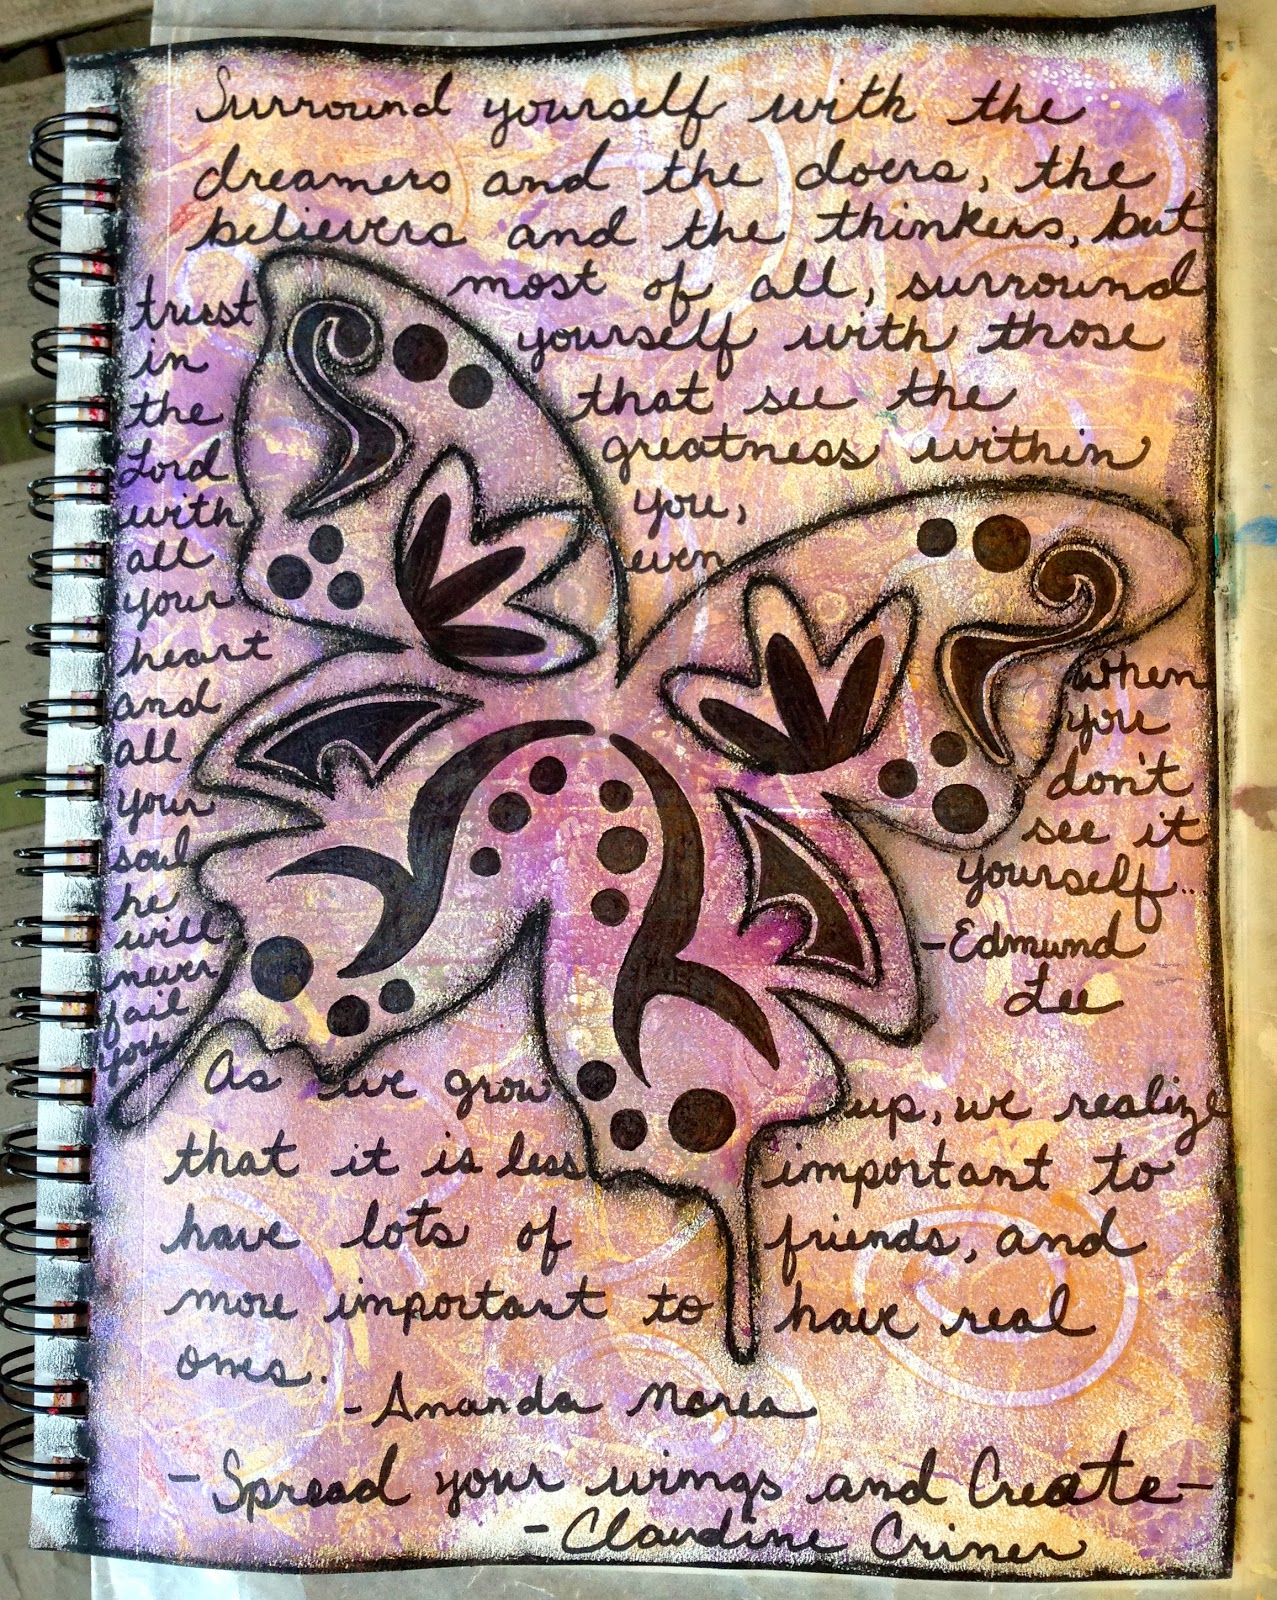 Surround yourself with the
dreamers and the doers, the
believers and the thinkers, but
most of all, surround
yourself with those
that see the
greatness within
you,
even
when
you
don't
see it
yourself..
-Edmund
Lee
trust
in
the
Lord
with
all
your
heart
and
all
your
soul
he
will
never
fail
you
As we grow up, we realize
that it is less important to
have lots of friends, and
more important to have real
ones.
-Ananda Narea
-Spread your wings and Create-
-Claudine Criner